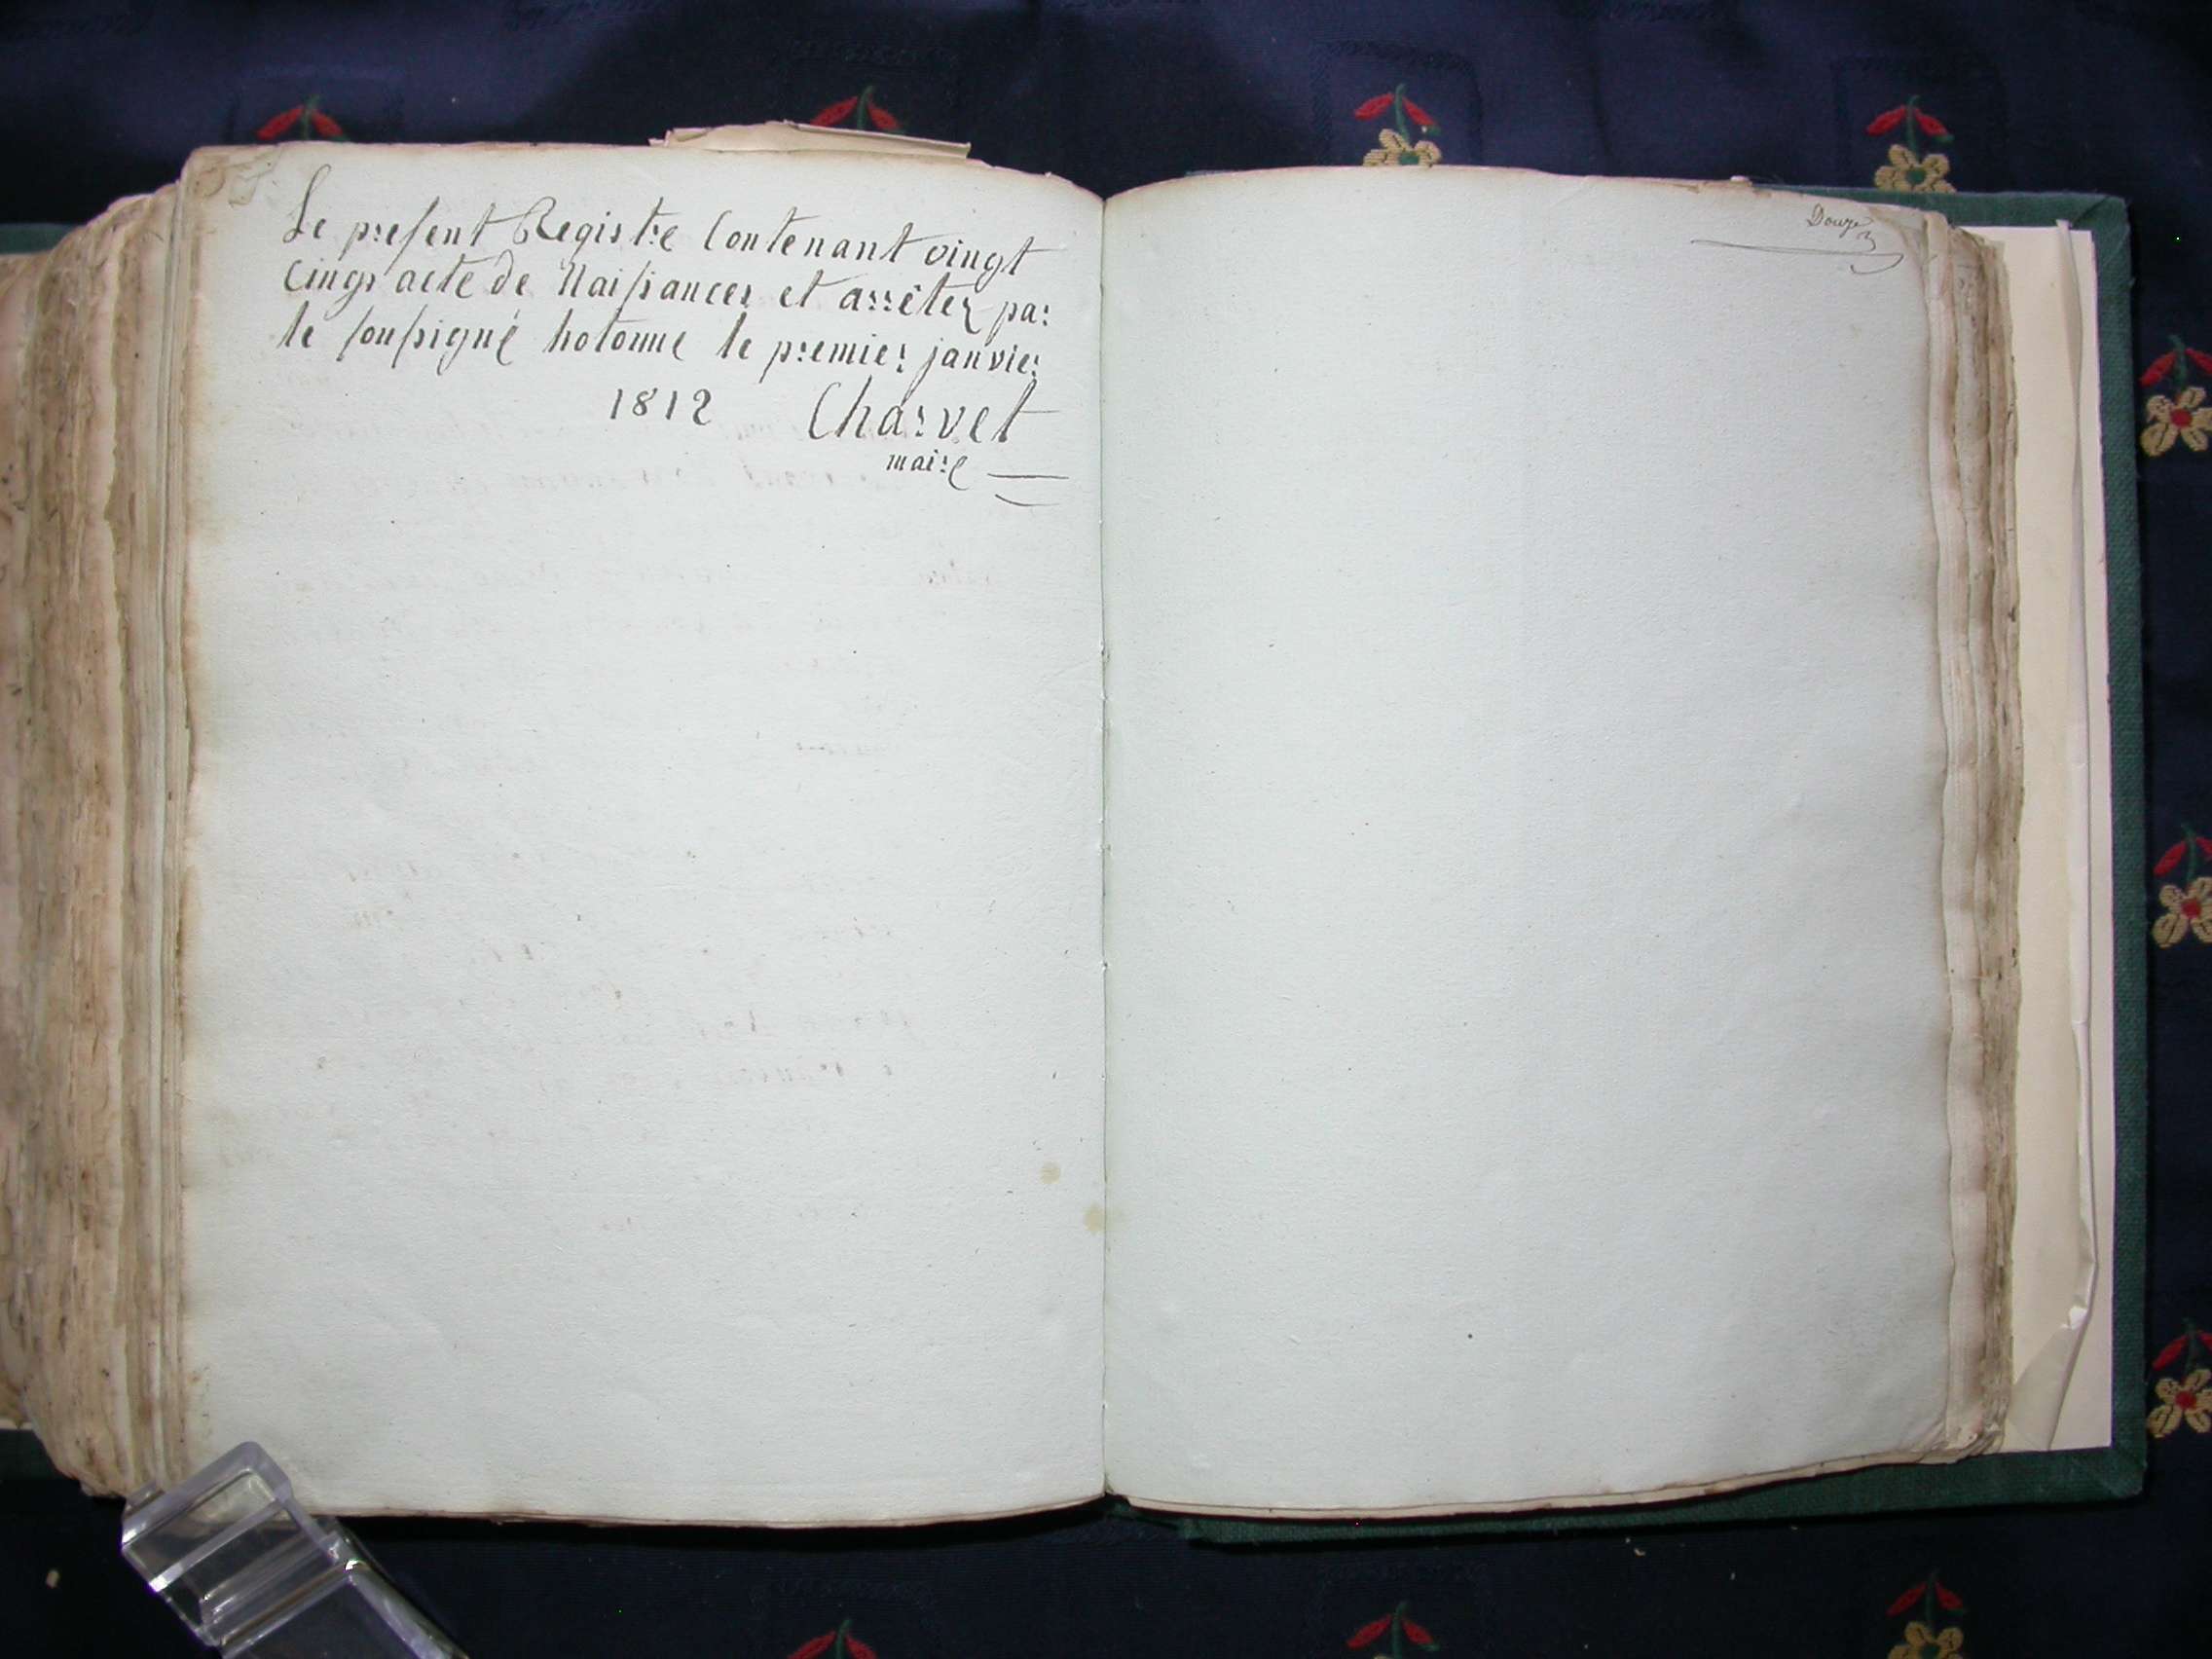 Le present Registre Contenant vingt
Cinq acte de Naissances et arrêtez par
le soussigné hotonne le premier janvier
1812 Charvet
maire
Douze